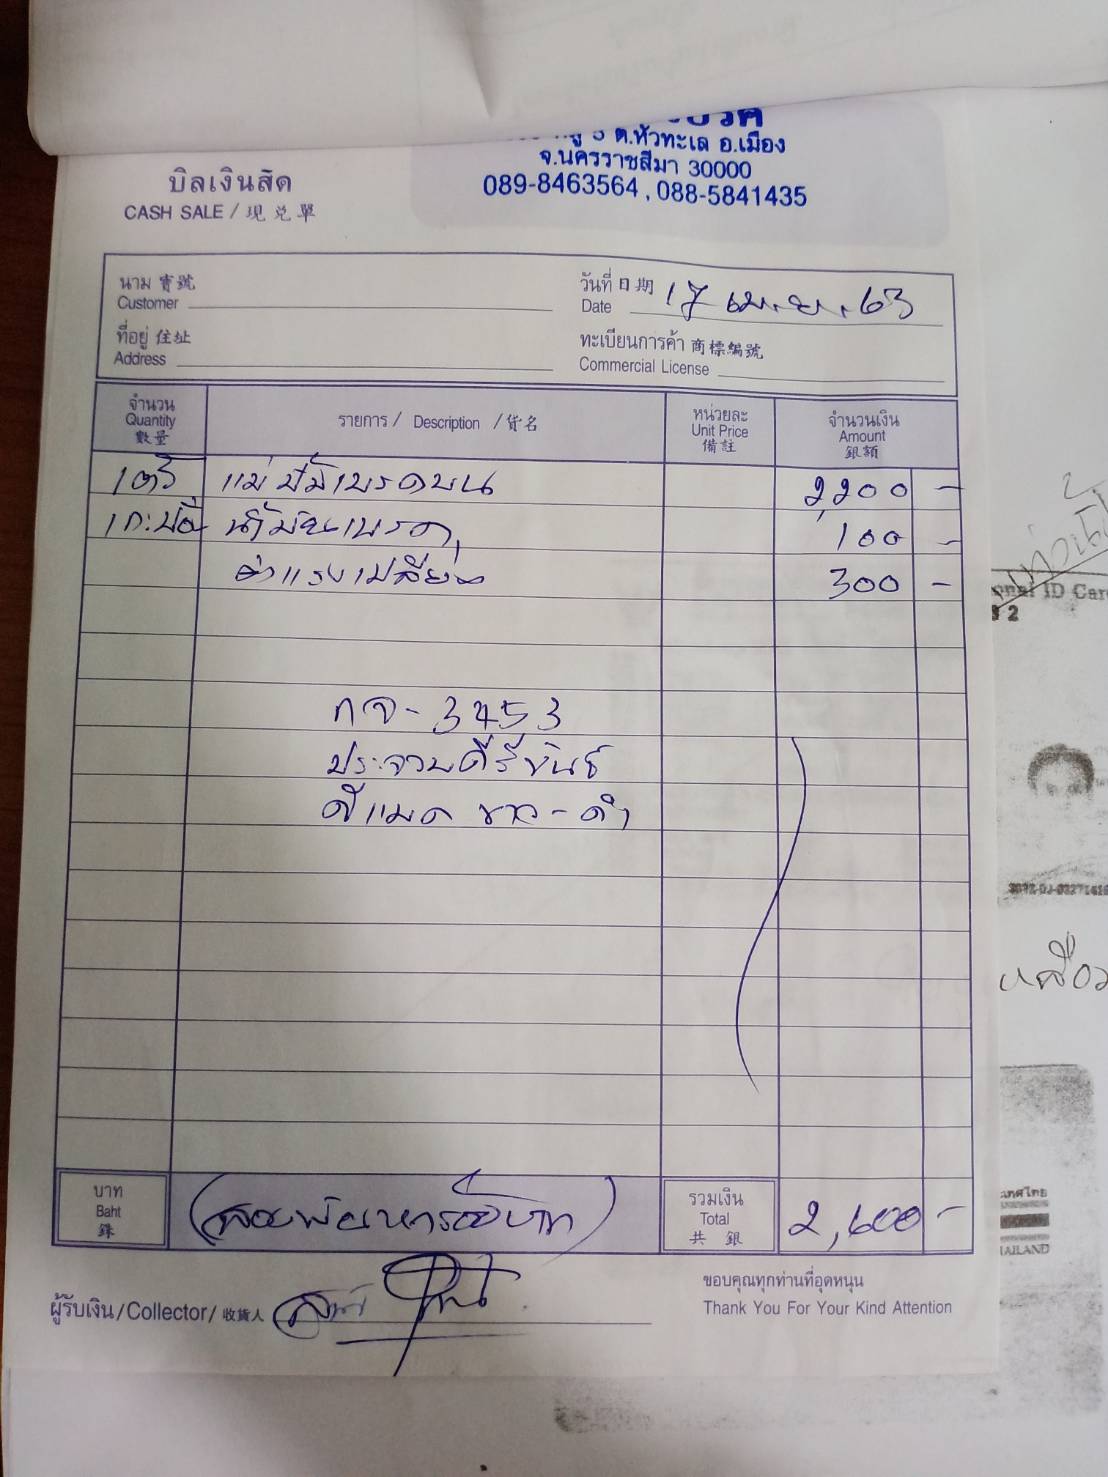 ต.หัวทะเล อ.เมือง
จ.นครราชสีมา 30000
089-8463564, 088-5841435
บิลเงินสด
CASH SALE / 現兌單
นาม 寶號
Customer
วันที่ 日期
Date 17 เม.ย. 63
ที่อยู่ 住址
Address
ทะเบียนการค้า 商標編號
Commercial License
จำนวน
Quantity
數量
รายการ / Description / 貨名
หน่วยละ
Unit Price
備註
จำนวนเงิน
Amount
銀額
1 ตัว แม่ปั๊มเบรคบน 2,200 -
1 กะป๋อง น้ำมันเบรค 100 -
ค่าแรงเปลี่ยน 300 -
กจ - 3453
ประจวบคีรีขันธ์
ดีแมค ขาว-ดำ
บาท
Baht
銖
(สองพันหกร้อยบาท)
รวมเงิน
Total
共銀
2,600 -
ผู้รับเงิน/Collector/收貨人
ขอบคุณทุกท่านที่อุดหนุน
Thank You For Your Kind Attention
onal ID Car
เหลือง
AILAND